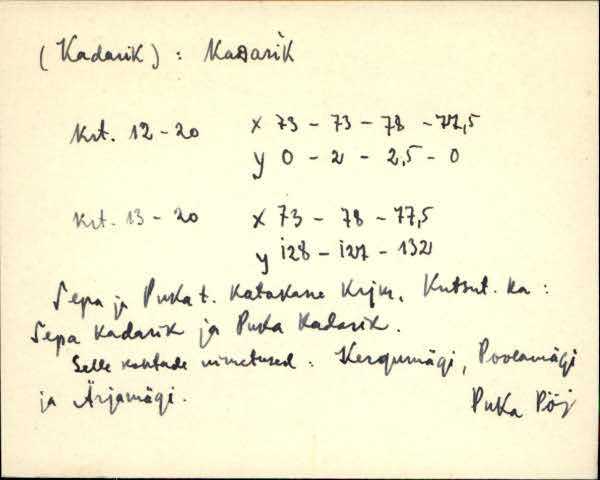 (Kadarik) : Kadarik
krt. 12-20 x 73 - 73 - 78 - 77,5
y 0 - 2 - 2,5 - 0
krt. 13-20 x 73 - 78 - 77,5
y 128 - 127 - 132
Sepa ja Puka t. katakane krjm. Kutsut. ka :
Sepa kadarik ja Puka kadarik.
Selle kohtade nimetused : Kergumägi, Poolamägi
ja Ärjamägi.
Puka Pöj